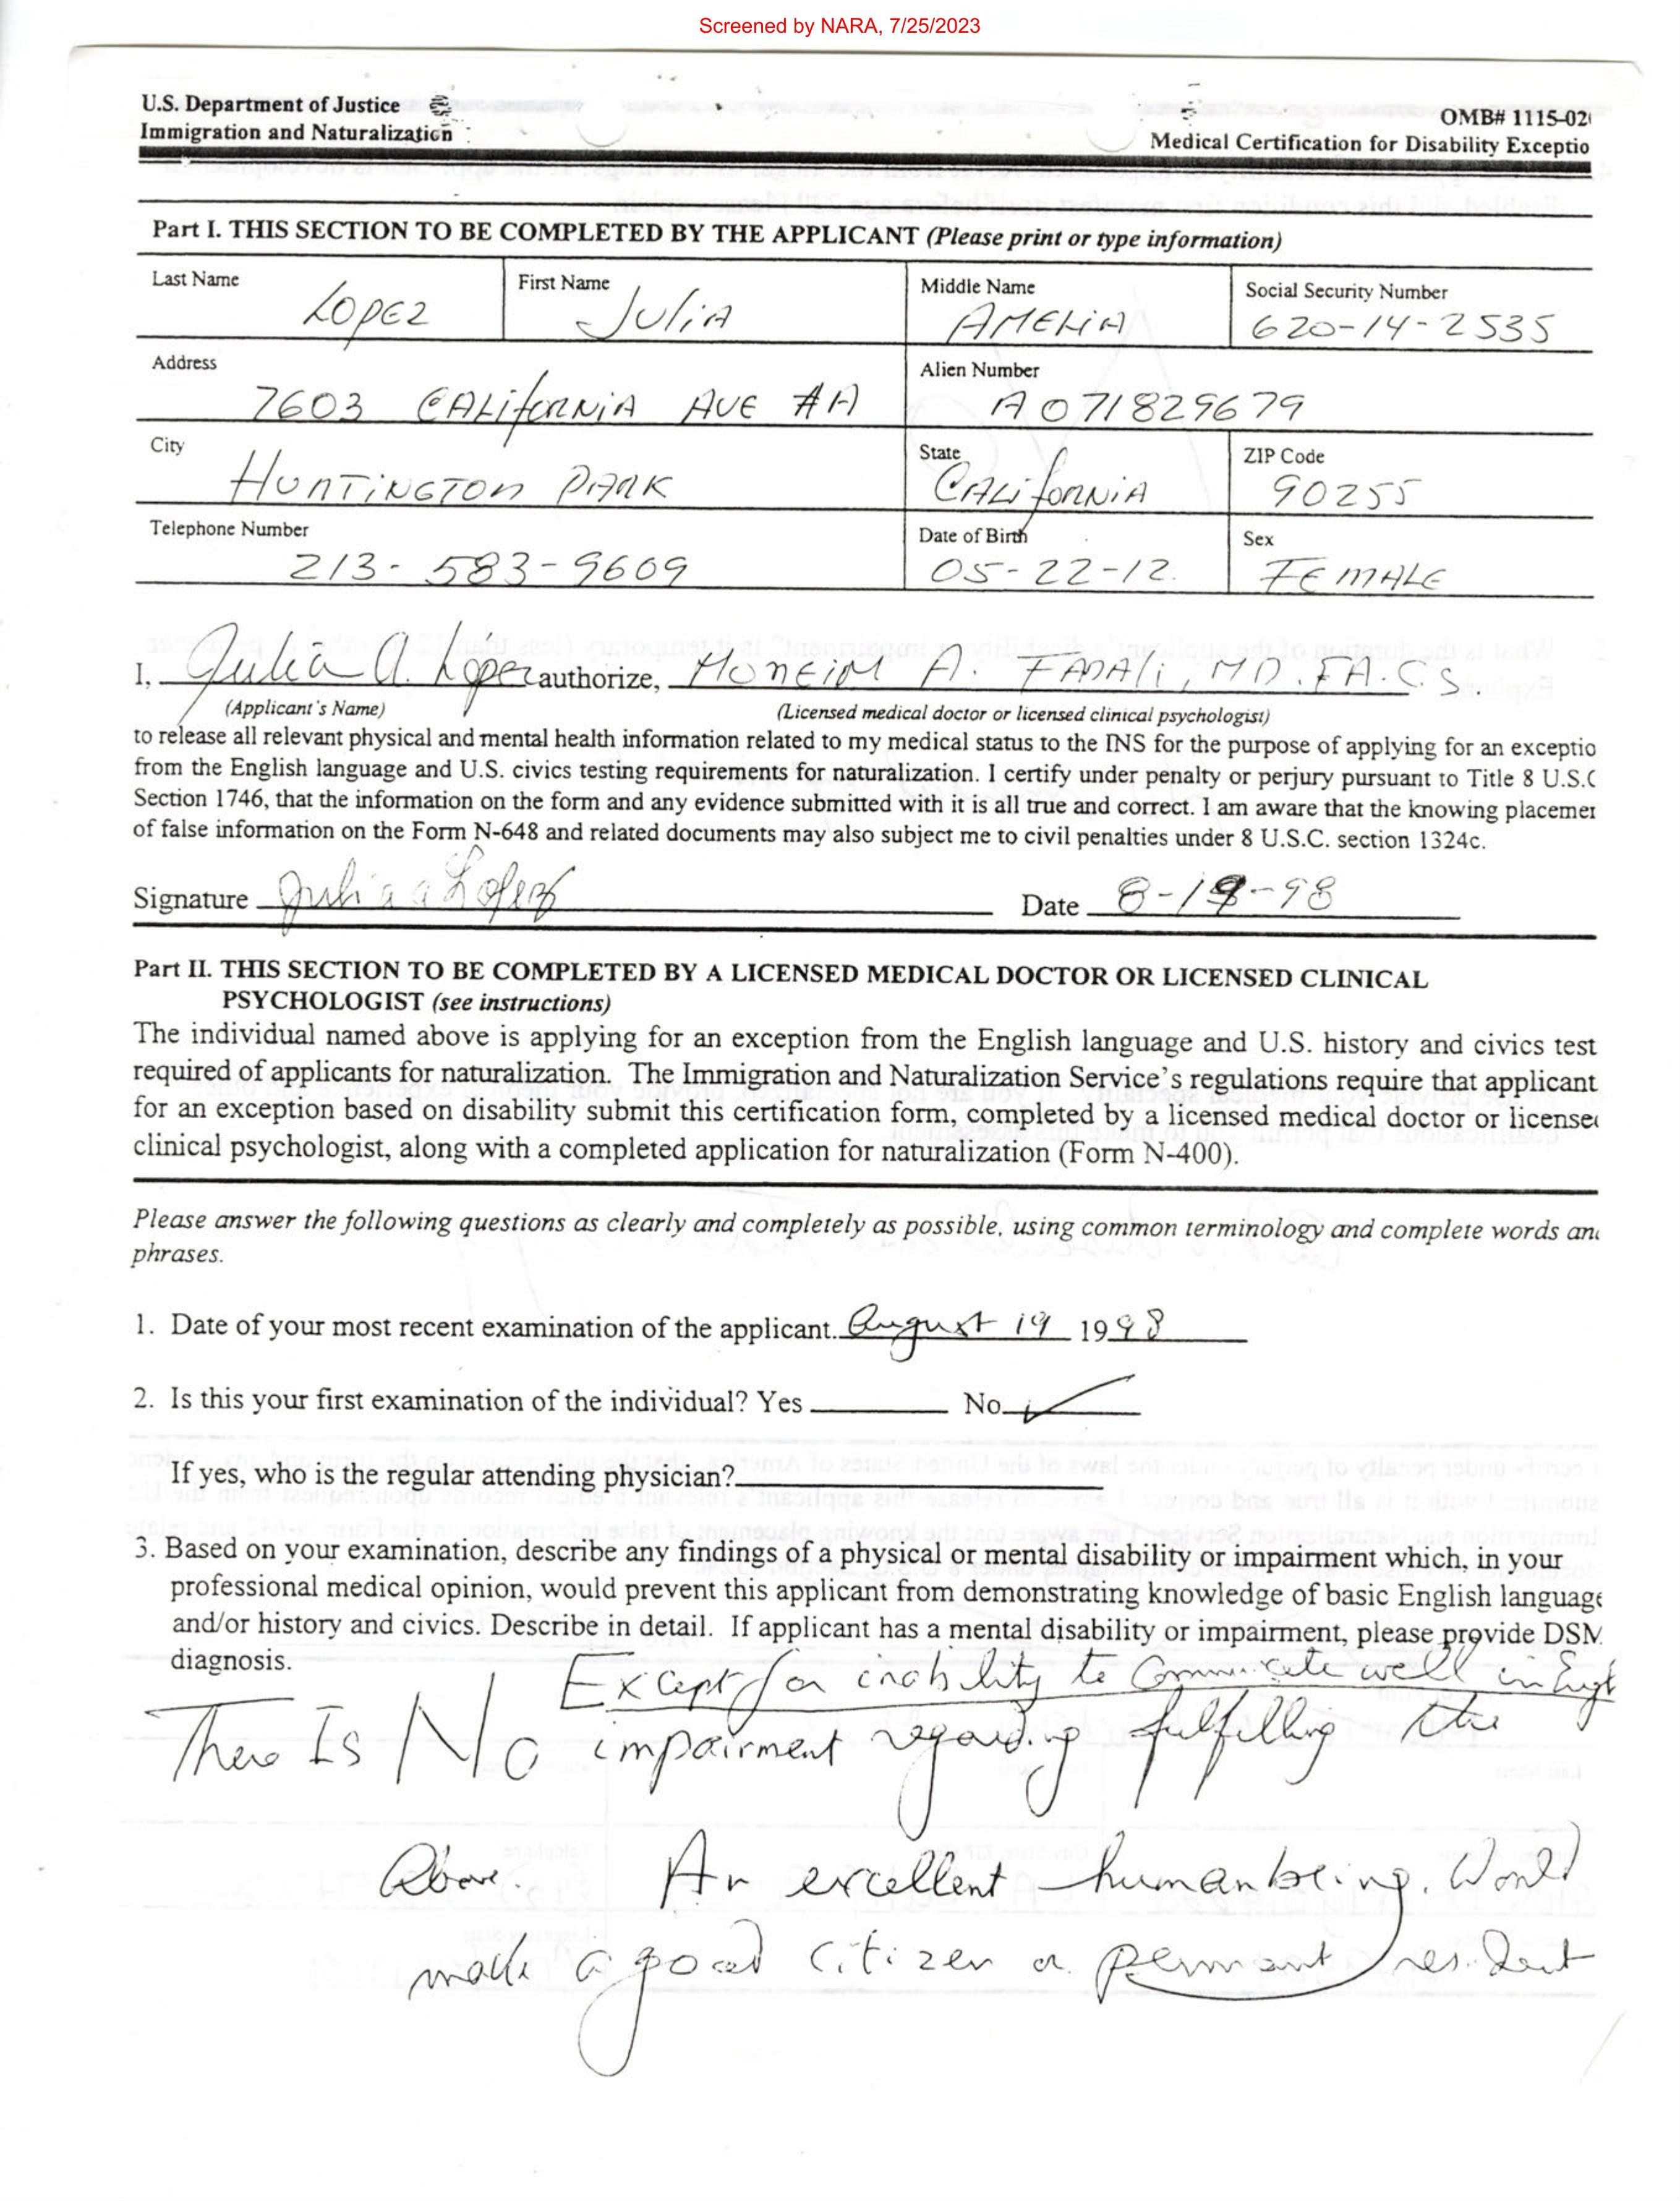 Screened by NARA, 7/25/2023
U.S. Department of Justice
Immigration and Naturalization
OMB# 1115-02
Medical Certification for Disability Exceptio
Part I. THIS SECTION TO BE COMPLETED BY THE APPLICANT (Please print or type information)
Last Name First Name Middle Name Social Security Number
LOPEZ JULIA AMELIA 620-14-2535
Address Alien Number
7603 CALIFORNIA AVE #A A071829679
City State ZIP Code
HUNTINGTON PARK CALIFORNIA 90255
Telephone Number Date of Birth Sex
213-583-9609 05-22-12. FEMALE
I, Julia A. López authorize, MONEIM A. FADALi, MD. F.A.C.S.
(Applicant's Name) (Licensed medical doctor or licensed clinical psychologist)
to release all relevant physical and mental health information related to my medical status to the INS for the purpose of applying for an exceptio
from the English language and U.S. civics testing requirements for naturalization. I certify under penalty or perjury pursuant to Title 8 U.S.C
Section 1746, that the information on the form and any evidence submitted with it is all true and correct. I am aware that the knowing placemer
of false information on the Form N-648 and related documents may also subject me to civil penalties under 8 U.S.C. section 1324c.
Signature Julia a Lopez Date 8-19-98
Part II. THIS SECTION TO BE COMPLETED BY A LICENSED MEDICAL DOCTOR OR LICENSED CLINICAL
PSYCHOLOGIST (see instructions)
The individual named above is applying for an exception from the English language and U.S. history and civics test
required of applicants for naturalization. The Immigration and Naturalization Service's regulations require that applicant
for an exception based on disability submit this certification form, completed by a licensed medical doctor or license
clinical psychologist, along with a completed application for naturalization (Form N-400).
Please answer the following questions as clearly and completely as possible, using common terminology and complete words an
phrases.
1. Date of your most recent examination of the applicant. August 19 1998
2. Is this your first examination of the individual? Yes No ✓
If yes, who is the regular attending physician?
3. Based on your examination, describe any findings of a physical or mental disability or impairment which, in your
professional medical opinion, would prevent this applicant from demonstrating knowledge of basic English language
and/or history and civics. Describe in detail. If applicant has a mental disability or impairment, please provide DSM
diagnosis.
Except for inability to Communicate well in Engl
There Is No impairment regarding fulfilling the
Above. An excellent human being. Would
make a good citizen or permant resident